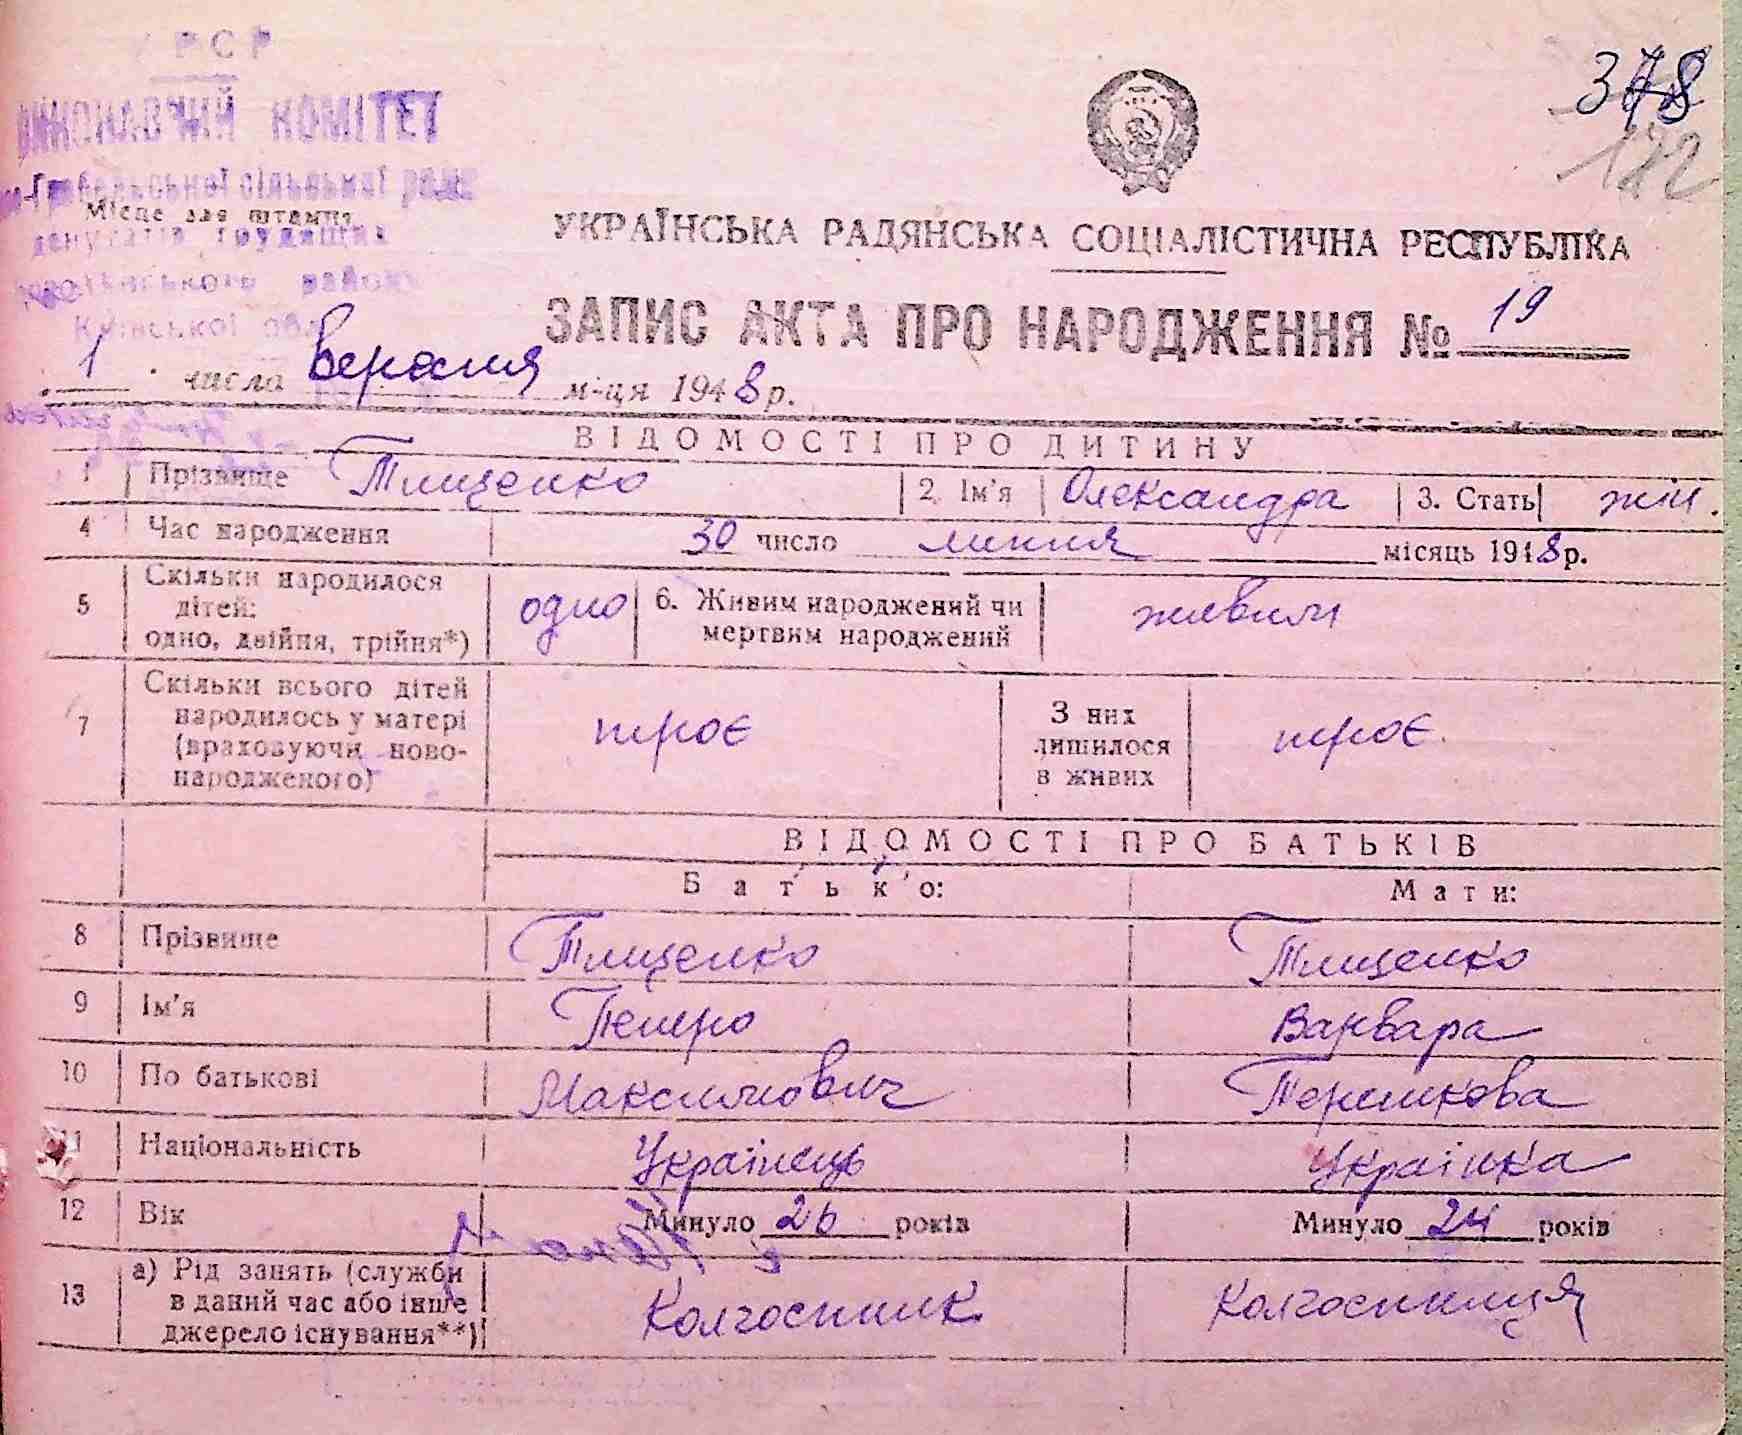 РСР
ВИКОНАВЧИЙ КОМІТЕТ
сільської ради
Місце для штампу
депутатів трудящих
району
Київської обл.
378
172
УКРАЇНСЬКА РАДЯНСЬКА СОЦІАЛІСТИЧНА РЕСПУБЛІКА
ЗАПИС АКТА ПРО НАРОДЖЕННЯ № 19
1 числа Вересня м-ця 1948 р.
ВІДОМОСТІ ПРО ДИТИНУ
1 Прізвище Тищенко 2. Ім'я Олександра 3. Стать жін.
4 Час народження 30 число липня місяць 1948 р.
5 Скільки народилося дітей: одно, двійня, трійня*) одно 6. Живим народжений чи мертвим народжений живим
7 Скільки всього дітей народилось у матері (враховуючи ново-народженого) троє З них лишилося в живих троє
ВІДОМОСТІ ПРО БАТЬКІВ
Батько: Мати:
8 Прізвище Тищенко Тищенко
9 Ім'я Петро Варвара
10 По батькові Максимович
11 Національність Українець Українка
12 Вік Минуло 26 років Минуло 24 років
13 а) Рід занять (служби в даний час або інше джерело існування**) Колгоспник Колгоспниця